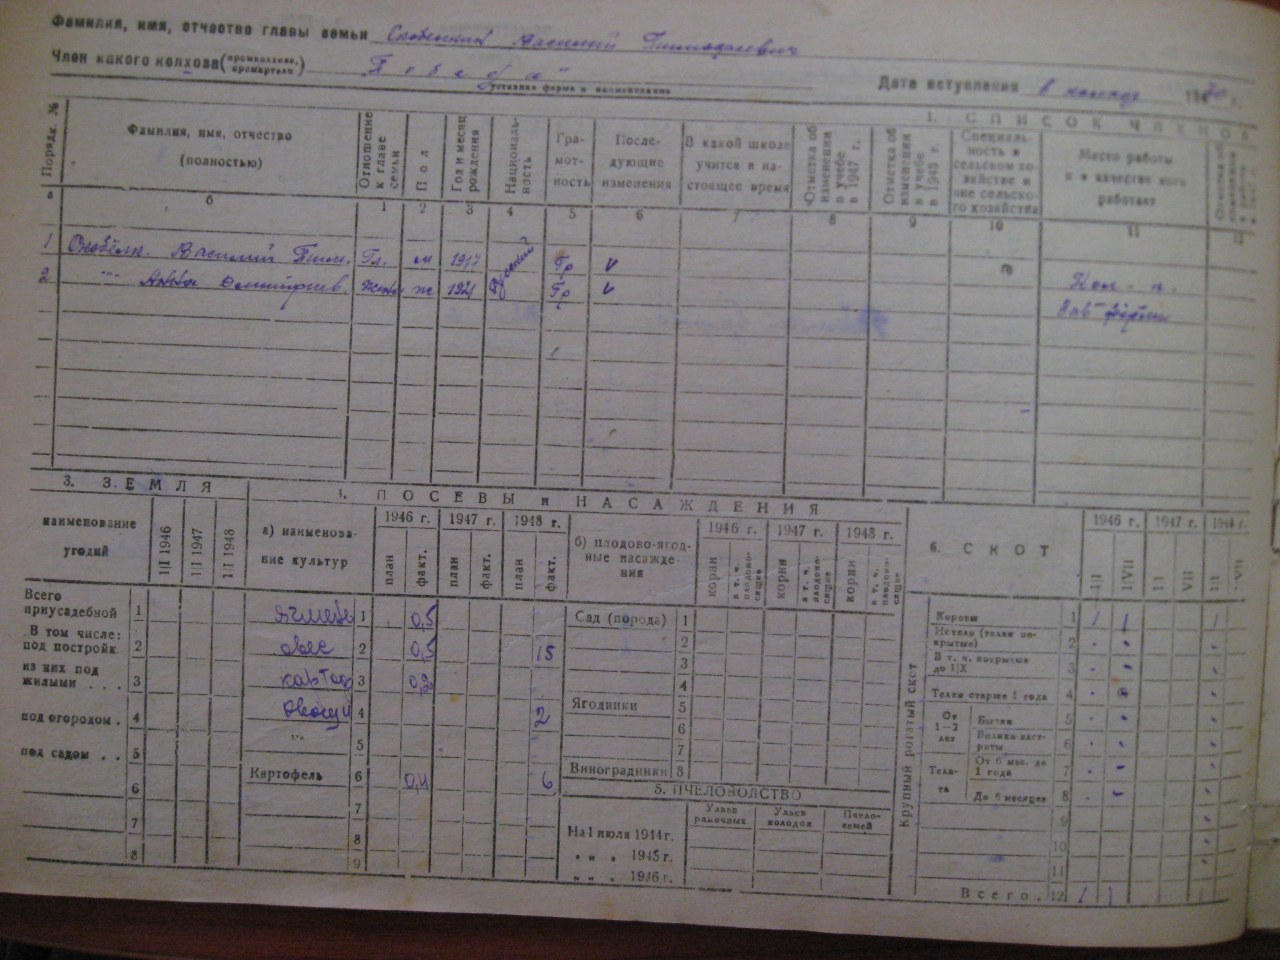 Фамилия, имя, отчество главы семьи Василий Тимофеевич
Член какого колхоза (промколхоза, промартели) "Победа" Дата вступления в колхоз
уставная форма и наименование
1. СПИСОК ЧЛЕНОВ
Порядк. № Фамилия, имя, отчество (полностью) Отношение к главе семьи Пол Год и месяц рождения Национальность Грамотность Последующие изменения В какой школе учится в настоящее время Отметка об изменении в учебе в 1947 г. Отметка об изменении в учебе в 1948 г. Специальность в сельском хозяйстве и вне сельского хозяйства Место работы и в качестве кого работает
а б 1 2 3 4 5 6 7 8 9 10 11 12
1 Василий Тим. Гл. м 1917 Русский Гр V
2 -"- жена ж 1921 Гр V
Зав фермы
3. ЗЕМЛЯ 4. ПОСЕВЫ и НАСАЖДЕНИЯ
наименование угодий 1|I 1946 1|I 1947 1|I 1948
а) наименование культур 1946 г. 1947 г. 1948 г.
план факт. план факт. план факт.
б) плодово-ягодные насаждения 1946 г. 1947 г. 1948 г.
корни в т. ч. плодоносящие корни в т. ч. плодоносящие корни в т. ч. плодоносящие
6. СКОТ 1946 г. 1947 г.
1|I 1|VII
Всего приусадебной 1
В том числе: под постройк. 2
из них под жилыми . . . 3
под огородом . 4
под садом . . 5
6
7
8
1 0,5
овес 2 0,5 15
3
4 2
5
Картофель 6 0,4 6
7
8
9
Сад (порода) 1
2
3
4
Ягодники 5
6
7
Виноградники 8
5. ПЧЕЛОВОДСТВО
Ульев рамочных Ульев колодок Пчелосемей
На 1 июля 1944 г.
„ „ „ 1945 г.
„ „ „ 1946 г.
Крупный рогатый скот
Коровы 1 1 1 1
Нетели (телки покрытые) 2
В т. ч. покрытые до 1|X 3
Телки старше 1 года 4
От 1—2 лет Бычки 5
Волики кастраты 6
Телята От 6 мес. до 1 года 7
До 6 месяцев 8
9
10
11
Всего. 12 1 1